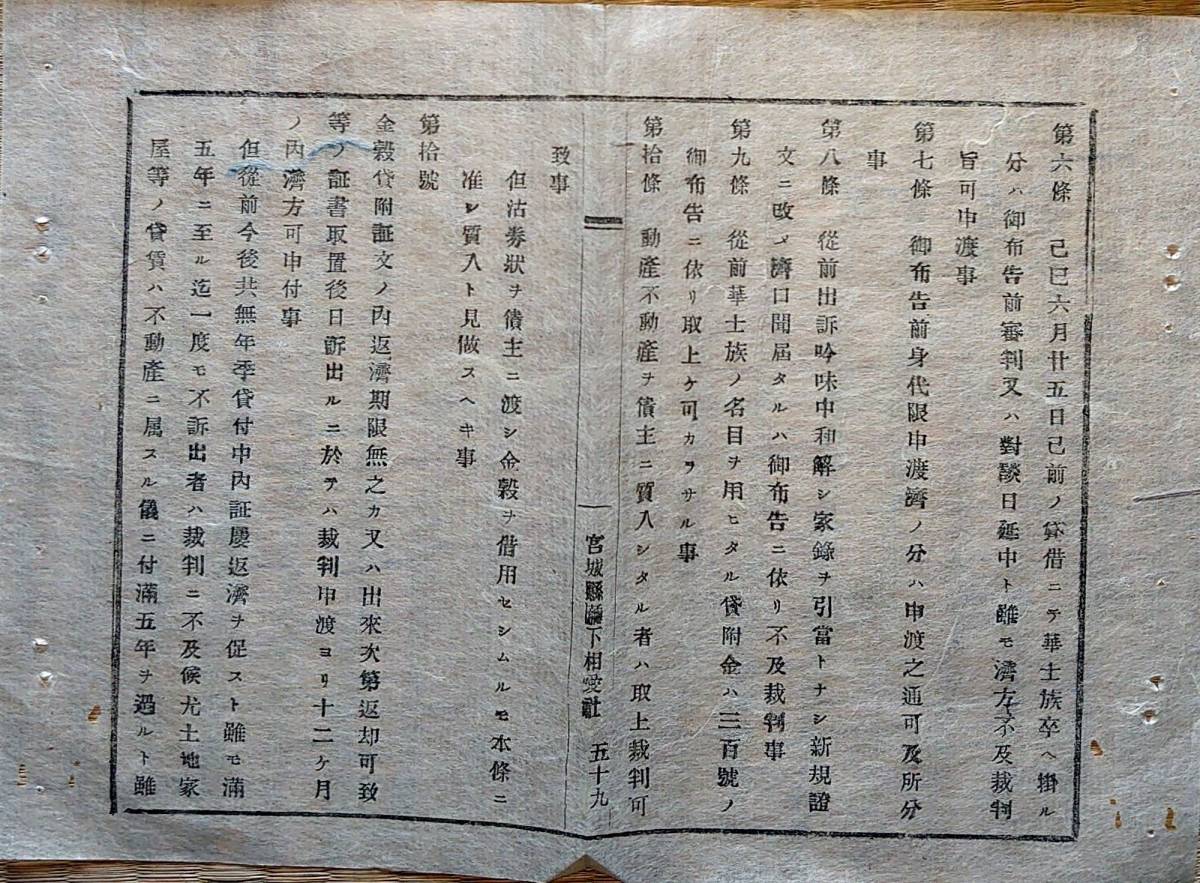 第六條 己巳六月廿五日已前ノ貸借ニテ華士族卒ヘ掛ル
分ハ御布告前審判又ハ對談日延中ト雖モ濟方不及裁判
旨可申渡事
第七條 御布告前身代限申渡濟ノ分ハ申渡之通可及所分
事
第八條 從前出訴吟味中和解シ家錄ヲ引當トナシ新規證
文ニ改メ濟口聞屆タルハ御布告ニ依リ不及裁判事
第九條 從前華士族ノ名目ヲ用ヒタル貸附金ハ三百號ノ
御布告ニ依リ取上ケ可カラサル事
第拾條 動產不動產ヲ債主ニ質入シタル者ハ取上裁判可
宮城縣廳下相愛社 五十九
致事
但沽券狀ヲ債主ニ渡シ金穀ヲ借用セシムルモ本條ニ
准シ質入ト見做スヘキ事
第拾號
金穀貸附証文ノ內返濟期限無之カ又ハ出來次第返却可致
等ノ証書取置後日訴出ルニ於テハ裁判申渡ヨリ十二ケ月
ノ內濟方可申付事
但從前今後共無年季貸付中內証慶返濟ヲ促スト雖モ滿
五年ニ至ル迄一度モ不訴出者ハ裁判ニ不及候尤土地家
屋等ノ貸賃ハ不動產ニ属スル儀ニ付滿五年ヲ過ルト雖